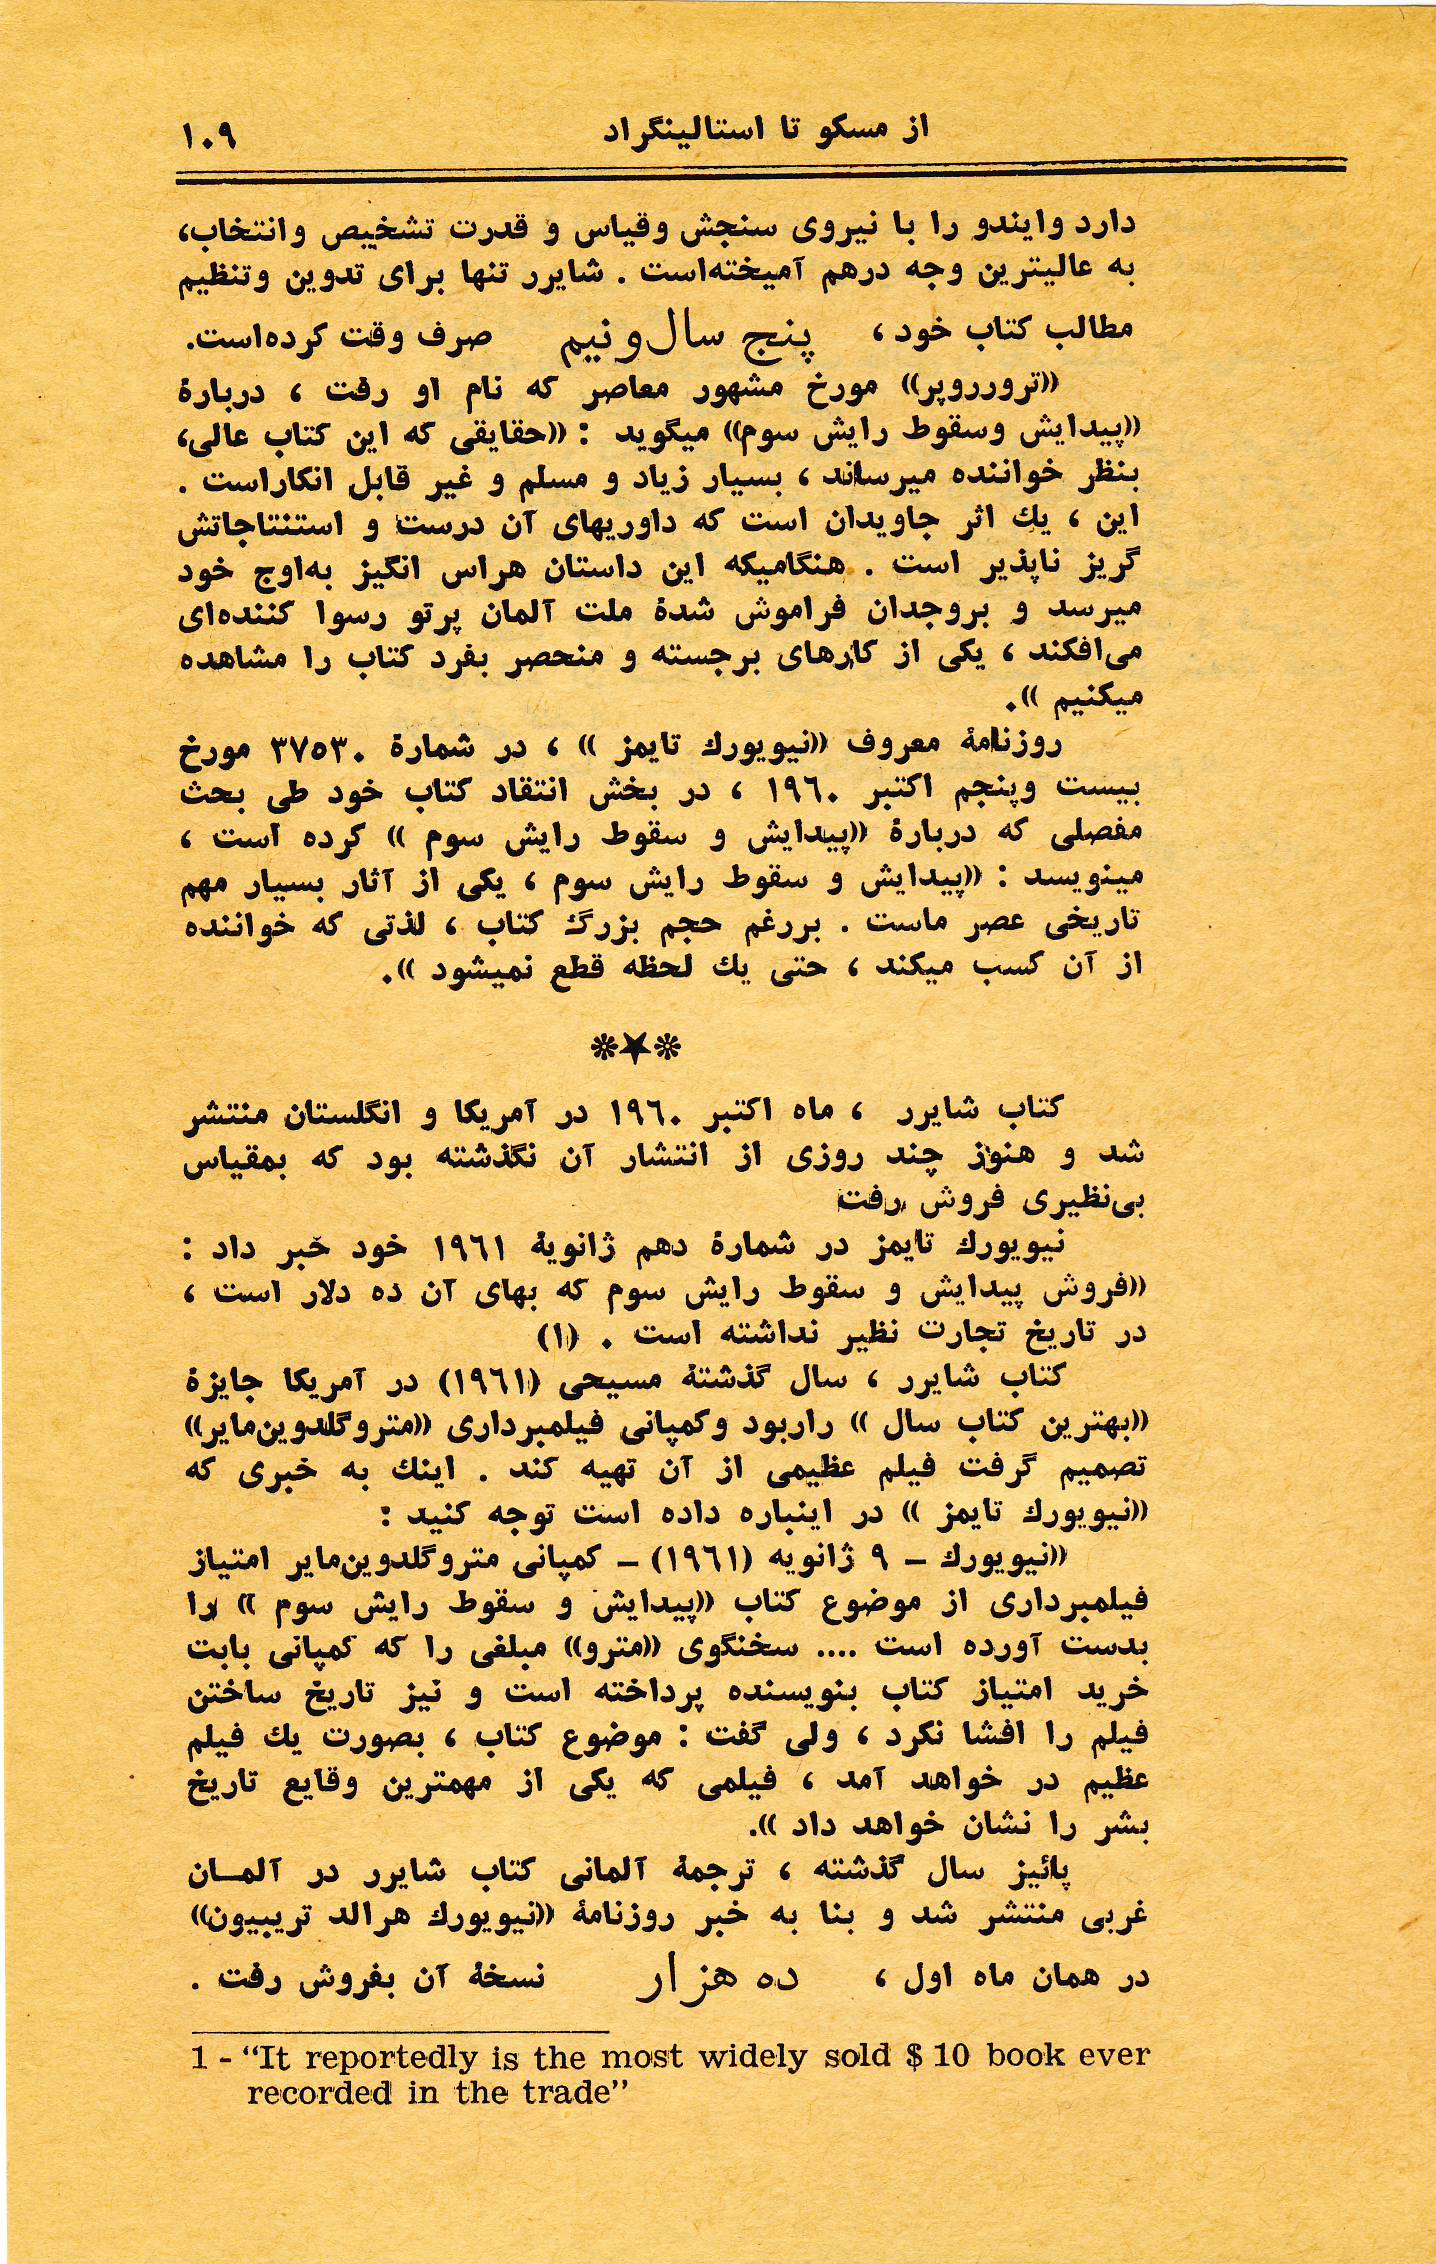 از مسکو تا استالینگراد
۱۰۹
دارد وایندو را با نیروی سنجش وقیاس و قدرت تشخیص وانتخاب،
به عالیترین وجه درهم آمیخته‌است . شایرر تنها برای تدوین وتنظیم
مطالب کتاب خود ، پنج سال‌ونیم صرف وقت کرده‌است.
((ترورروپر)) مورخ مشهور معاصر که نام او رفت ، دربارهٔ
((پیدایش وسقوط رایش سوم)) میگوید : ((حقایقی که این کتاب عالی،
بنظر خواننده میرساند ، بسیار زیاد و مسلم و غیر قابل انکاراست .
این ، یك اثر جاویدان است که داوریهای آن درست و استنتاجاتش
گریز ناپذیر است . هنگامیکه این داستان هراس انگیز به‌اوج خود
میرسد و بروجدان فراموش شدهٔ ملت آلمان پرتو رسوا کننده‌ای
می‌افکند ، یکی از کارهای برجسته و منحصر بفرد کتاب را مشاهده
میکنیم )).
روزنامهٔ معروف ((نیویورك تایمز )) ، در شمارهٔ ۳۷۵۳۰ مورخ
بیست وپنجم اکتبر ۱۹٦۰ ، در بخش انتقاد کتاب خود طی بحث
مفصلی که دربارهٔ ((پیدایش و سقوط رایش سوم )) کرده است ،
مینویسد : ((پیدایش و سقوط رایش سوم ، یکی از آثار بسیار مهم
تاریخی عصر ماست . بررغم حجم بزرگ کتاب ، لذتی که خواننده
از آن کسب میکند ، حتی یك لحظه قطع نمیشود )).
❊★❊
کتاب شایرر ، ماه اکتبر ۱۹٦۰ در آمریکا و انگلستان منتشر
شد و هنوز چند روزی از انتشار آن نگذشته بود که بمقیاس
بی‌نظیری فروش رفت
نیویورك تایمز در شمارهٔ دهم ژانویهٔ ۱۹٦۱ خود خبر داد :
((فروش پیدایش و سقوط رایش سوم که بهای آن ده دلار است ،
در تاریخ تجارت نظیر نداشته است . (۱)
کتاب شایرر ، سال گذشتهٔ مسیحی (۱۹٦۱) در آمریکا جایزهٔ
((بهترین کتاب سال )) راربود وکمپانی فیلمبرداری ((متروگلدوین‌مایر))
تصمیم گرفت فیلم عظیمی از آن تهیه کند . اینك به خبری که
((نیویورك تایمز )) در اینباره داده است توجه کنید :
((نیویورك – ۹ ژانویه (۱۹٦۱) – کمپانی متروگلدوین‌مایر امتیاز
فیلمبرداری از موضوع کتاب ((پیدایش و سقوط رایش سوم )) را
بدست آورده است .... سخنگوی ((مترو)) مبلغی را که کمپانی بابت
خرید امتیاز کتاب بنویسنده پرداخته است و نیز تاریخ ساختن
فیلم را افشا نکرد ، ولی گفت : موضوع کتاب ، بصورت یك فیلم
عظیم در خواهد آمد ، فیلمی که یکی از مهمترین وقایع تاریخ
بشر را نشان خواهد داد )).
پائیز سال گذشته ، ترجمهٔ آلمانی کتاب شایرر در آلمـان
غربی منتشر شد و بنا به خبر روزنامهٔ ((نیویورك هرالد تریبیون))
در همان ماه اول ، ده هزار نسخهٔ آن بفروش رفت .
1 - “It reportedly is the most widely sold $ 10 book ever
recorded in the trade”